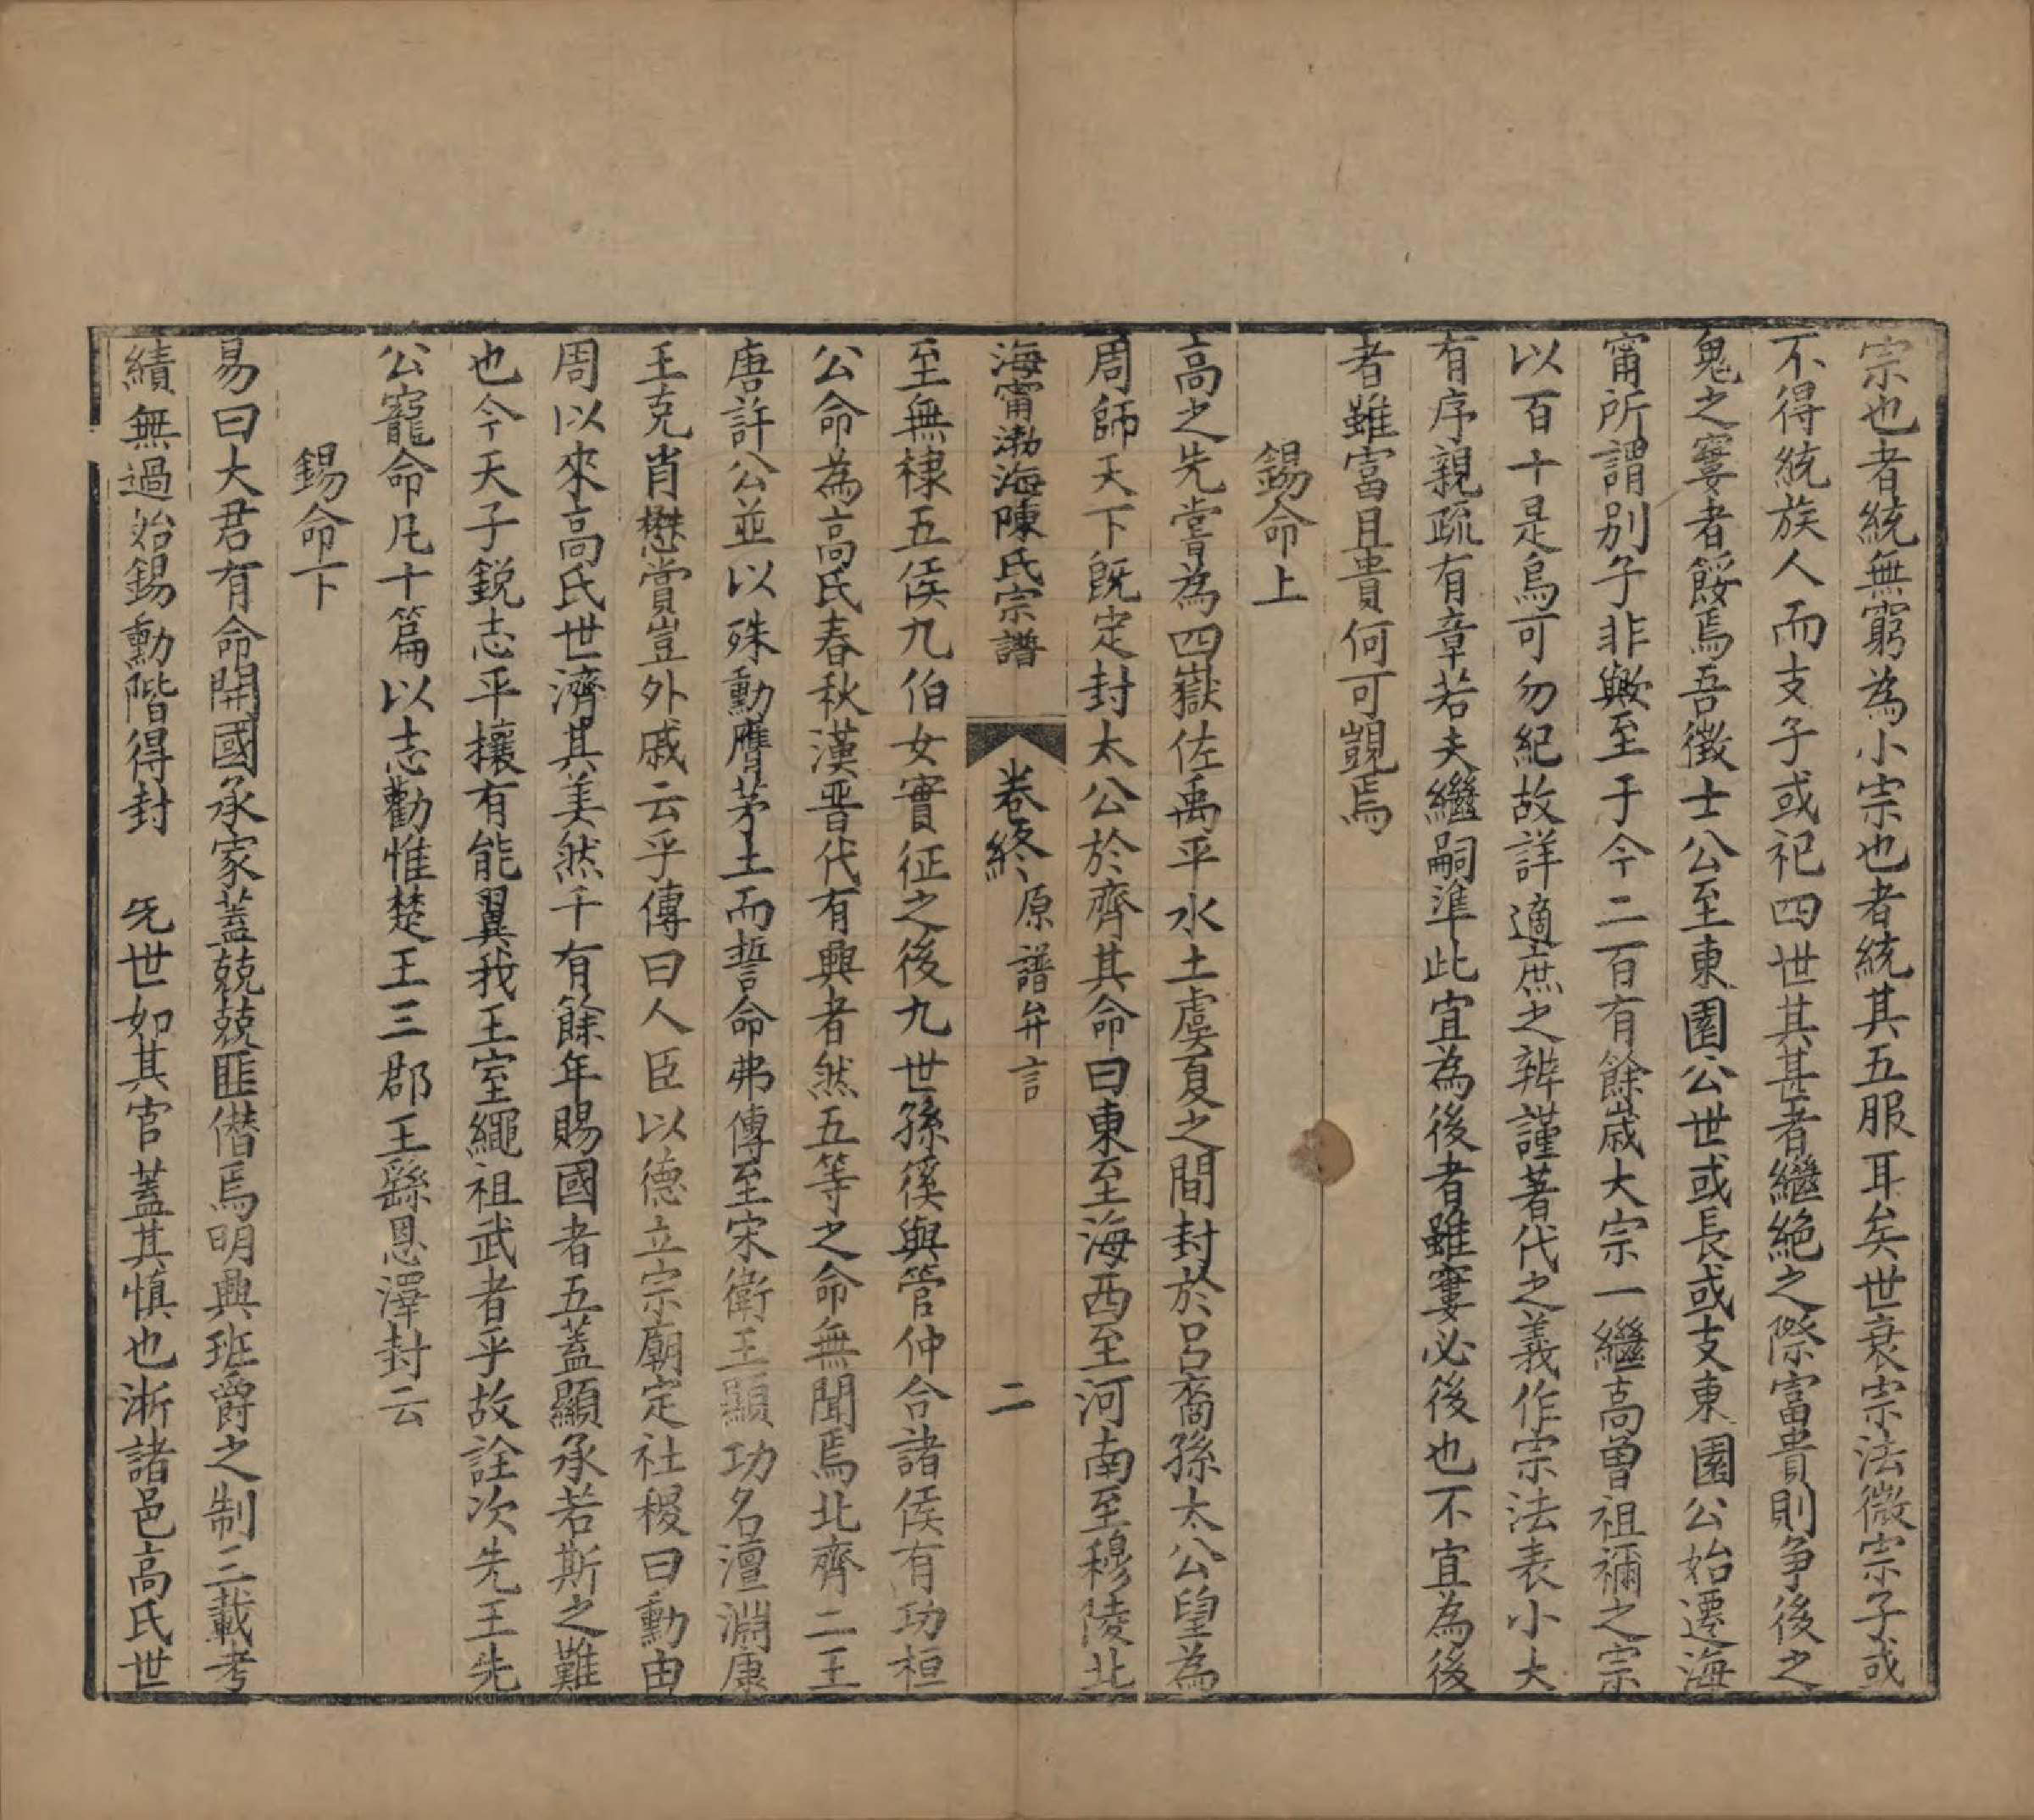 宗也者統無窮為小宗也者統其五服耳矣世衰宗法微宗子或
不得統族人而支子或祀四世其甚者繼絶之際富貴則争後之
鬼之寠者餒焉吾徵士公至東園公世或長或支東園公始遷海
甯所謂别子非歟至于今二百有餘嵗大宗一繼高曽祖禰之宗
以百十是烏可勿紀故詳適庶之辨謹著代之義作宗法表小大
有序親疏有章若夫繼嗣準此宜為後者雖寠必後也不宜為後
者雖富且貴何可覬焉
錫命上
高之先嘗為四嶽佐禹平水土虞夏之間封於吕裔孫太公望為
周師天下既定封太公於齊其命曰東至海西至河南至穆陵北
海甯渤海陳氏宗譜
卷終 原譜弁言
二
至無棣五侯九伯女實征之後九世孫傒與管仲合諸侯有功桓
公命為高氏春秋漢晉代有興者然五等之命無聞焉北齊二王
唐許公並以殊勳膺茅土而誓命弗傳至宋衛王顯功名澶淵康
王克肖懋賞豈外戚云乎傳曰人臣以德立宗廟定社稷曰勳由
周以來高氏世濟其美然千有餘年賜國者五蓋顯承若斯之難
也今天子鋭志平攘有能翼我王室繩祖武者乎故詮次先王先
公寵命凡十篇以志勸惟楚王三郡王繇恩澤封云
錫命下
易曰大君有命開國承家蓋兢兢匪僭焉明興班爵之制三載考
績無過始錫勳階得封 旡世如其官蓋其慎也淅諸邑高氏世